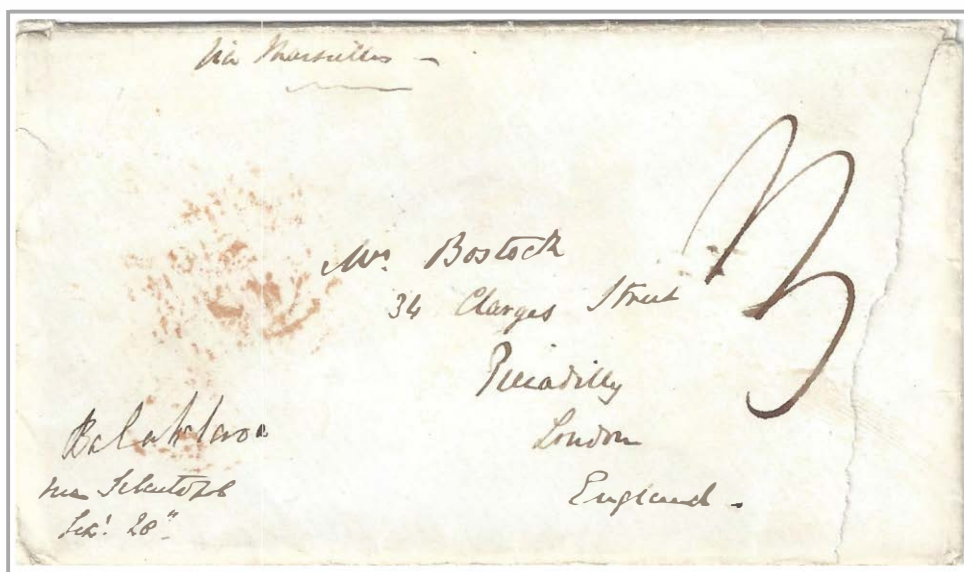 via Marseilles -
3
Mrs. Bostock
34 Clarges Street
Piccadilly
London
England -
Balaklava
near Sebastopol
Sept. 28"